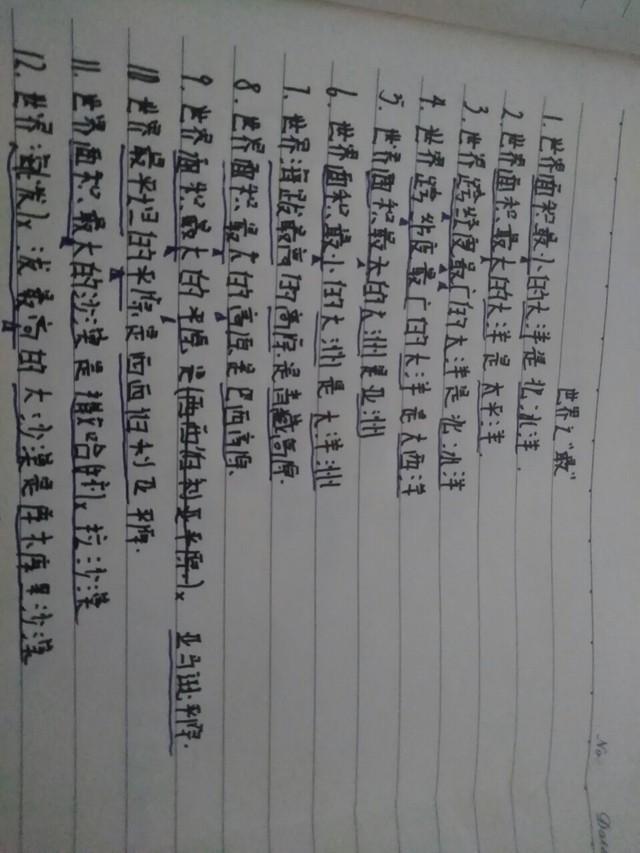 No
Date
世界之"最"
1. 世界面积最小的大洋是北冰洋.
2. 世界面积最大的大洋是太平洋
3. 世界跨经度最广的大洋是北冰洋
4. 世界跨纬度最广的大洋是大西洋
5. 世界面积最大的大洲是亚洲
6. 世界面积最小的大洲是大洋洲
7. 世界海拔最高的高原是青藏高原.
8. 世界面积最大的高原是巴西高原.
9. 世界面积最大的平原是(西西伯利亚平原)x 亚马逊平原.
10 世界最平坦的平原是西西伯利亚平原.
11. 世界面积最大的沙漠是撒哈拉沙漠
12. 世界海拔最高的大沙漠是库木库里沙漠